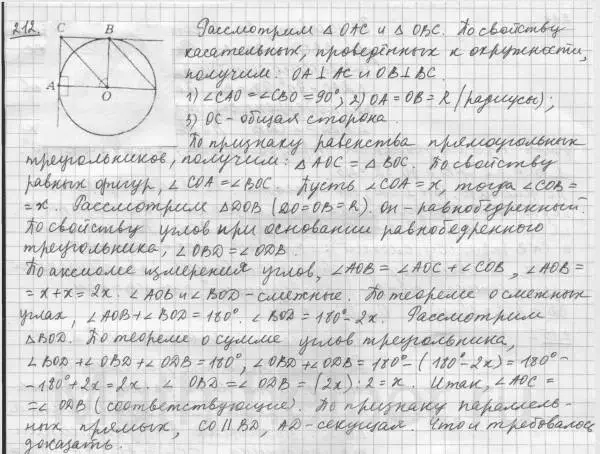 212.
C B
A O
Рассмотрим △ OAC и △ OBC. По свойству
касательных, проведённых к окружности,
получим: OA ⊥ AC и OB ⊥ BC.
1) ∠CAO = ∠CBO = 90°; 2) OA = OB = R (радиусы);
3) OC - общая сторона.
По признаку равенства прямоугольных
треугольников, получим: △ AOC = △ BOC. По свойству
равных фигур, ∠ COA = ∠BOC. Пусть ∠COA = x, тогда ∠COB =
= x. Рассмотрим △DOB (DO = OB = R). Он - равнобедренный.
По свойству углов при основании равнобедренного
треугольника, ∠ OBD = ∠ODB.
По аксиоме измерения углов, ∠AOB = ∠AOC + ∠COB, ∠AOB =
= x + x = 2x. ∠AOB и ∠BOD - смежные. По теореме о смежных
углах, ∠AOB + ∠BOD = 180°. ∠BOD = 180° - 2x. Рассмотрим
△BOD. По теореме о сумме углов треугольника,
∠BOD + ∠OBD + ∠ODB = 180°, ∠OBD + ∠ODB = 180° - (180° - 2x) = 180° -
- 180° + 2x = 2x. ∠ OBD = ∠ODB = (2x) : 2 = x. Итак, ∠AOC =
= ∠ ODB (соответствующие). По признаку параллель-
ных прямых, CO || BD, AD - секущая. Что и требовалось
доказать.